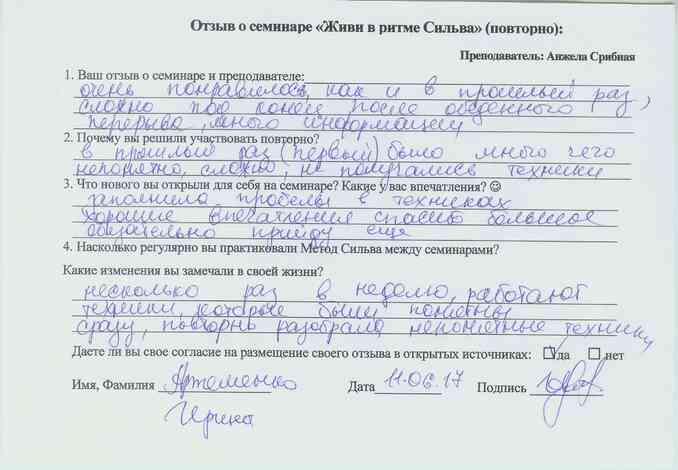 Отзыв о семинаре «Живи в ритме Сильва» (повторно):
Преподаватель: Анжела Срибная
1. Ваш отзыв о семинаре и преподавателе:
очень понравилось, как и в прошлый раз,
сложно под конец после обеденного
перерыва, много информации
2. Почему вы решили участвовать повторно?
в прошлый раз (первый) было много чего
непонятно, сложно, не получались техники
3. Что нового вы открыли для себя на семинаре? Какие у вас впечатления? ☺
заполнила пробелы в техниках
хорошие впечатления спасибо большое
обязательно прийду еще
4. Насколько регулярно вы практиковали Метод Сильва между семинарами?
Какие изменения вы замечали в своей жизни?
несколько раз в неделю, работают
техники, которые были понятны
сразу, повторно разобрала непонятные техники
Даете ли вы свое согласие на размещение своего отзыва в открытых источниках: да нет
Имя, Фамилия Артеменко Дата 11.06.17 Подпись
Ирина